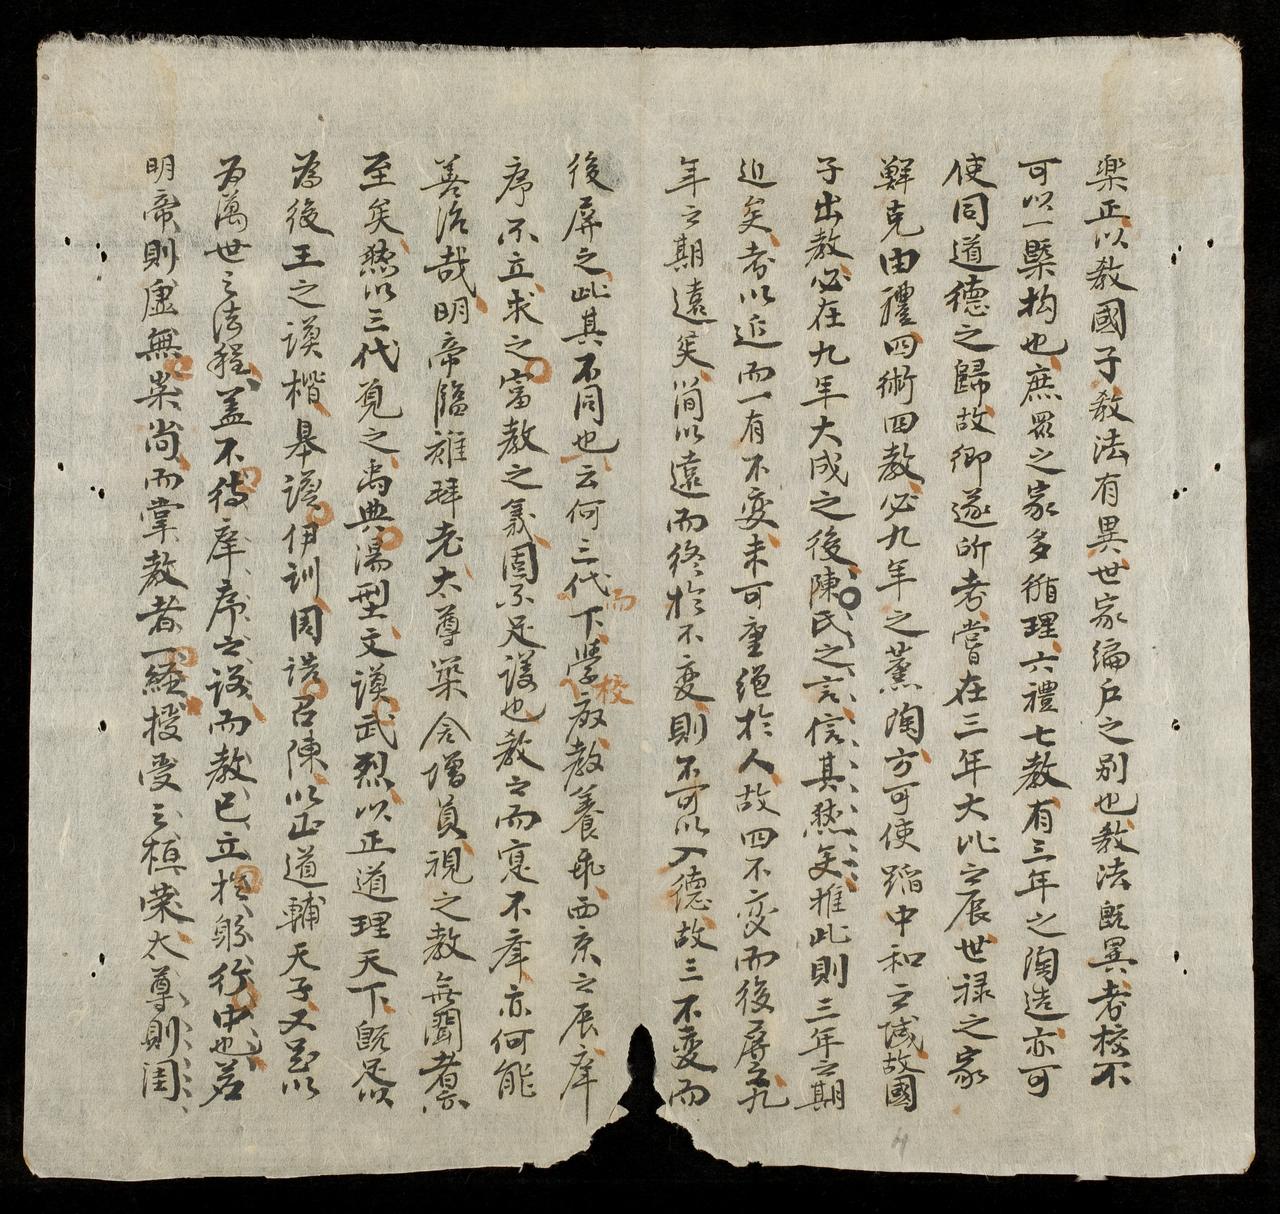 樂正以敎國子敎法有異世家編户之別也敎法旣異考校不
可以一槩拘也庶衆之家多循理六禮七敎有三年之陶造亦可
使同道德之歸故鄉遂所考嘗在三年大比之辰世祿之家
鮮克由禮四術四敎必九年之薰陶方可使蹈中和之域故國
子出敎必在九年大成之後陳氏之言信其然矣推此則三年之期
近矣考以近而一有不变未可重绝於人故四不变而後屏之九
年之期遠矣簡以遠而終於不变則不可以入德故三不变而
後屏之此其不同也云何三代下學敎養乖西京之辰庠
而校
序不立求之富敎之義固不足議也敎之而寔不庠亦何能
善治哉明帝臨雍拜老太尊築舍增員視之敎無聞者亦
至矣然以三代覓之禹典湯型文謨武烈以正道理天下旣足以
為後王之謨楷皋謨伊訓周誥召陳以正道輔天子又足以
为萬世之法程盖不待庠序之議而敎已立於躬行中也若
明帝則虛無崇尚而掌敎者一經授受之桓榮太尊則閨